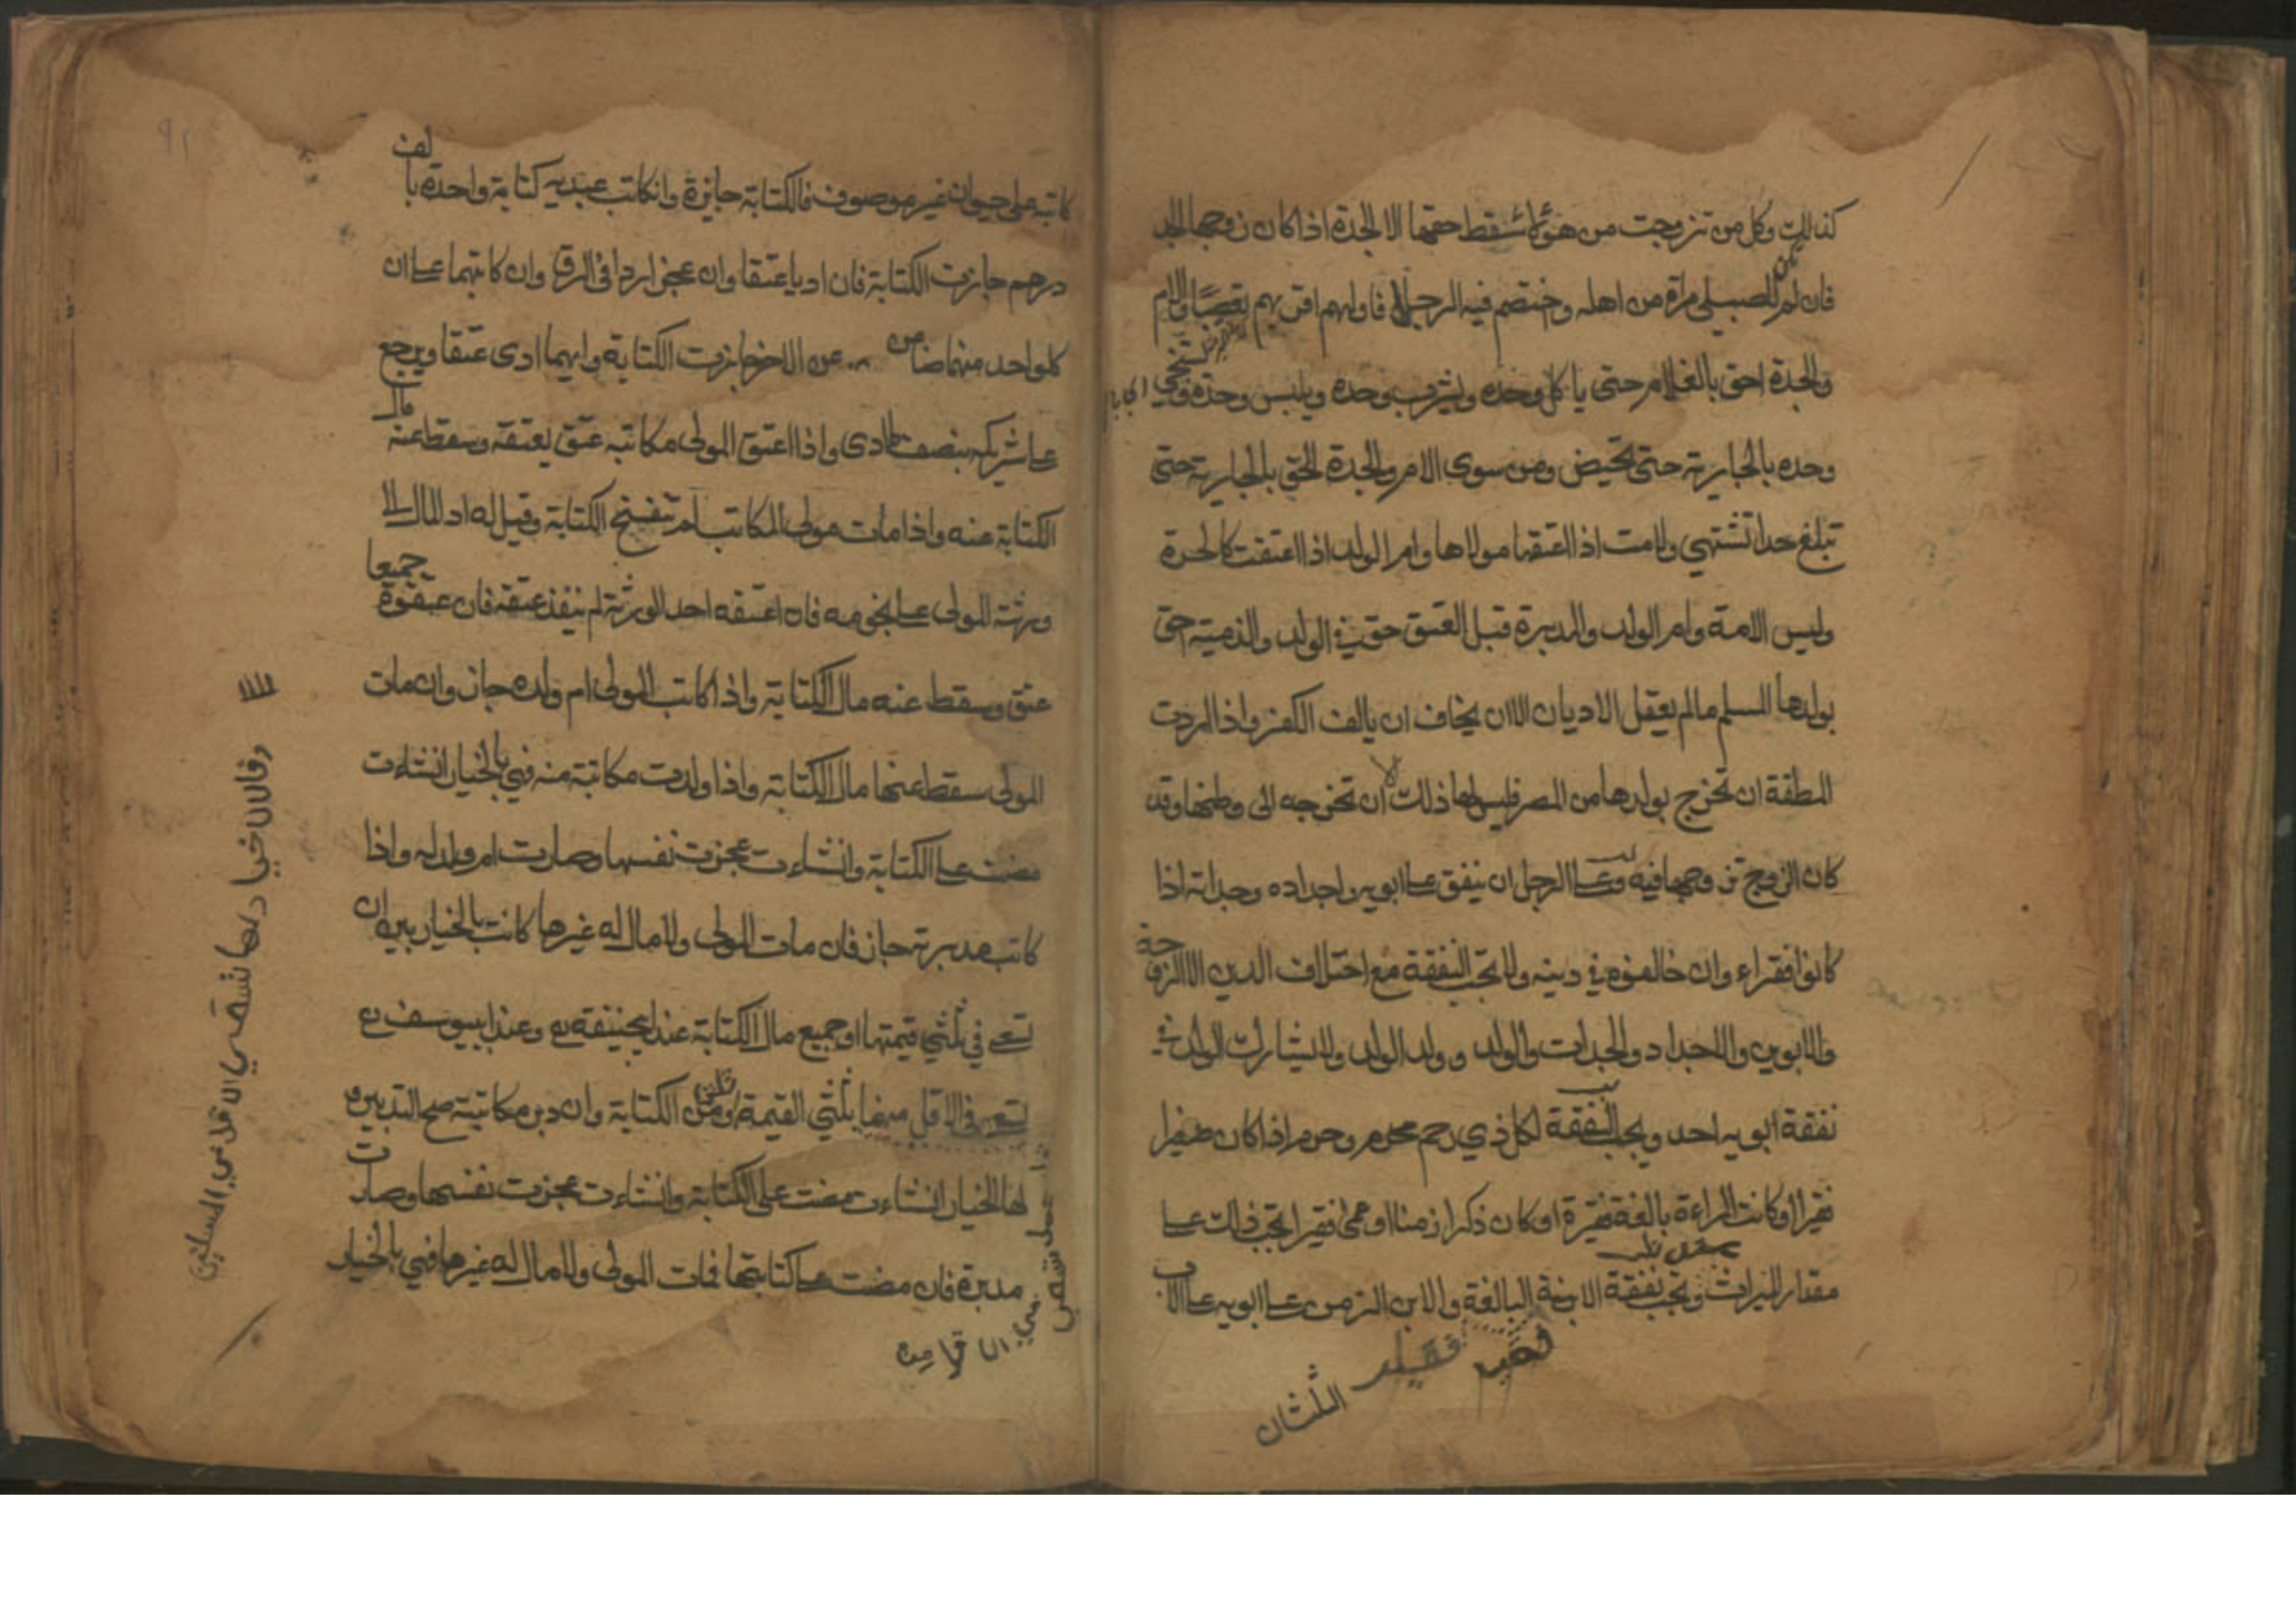 كذلك وكل من تزوجت من هؤلاء سقط حقها الا الجدة اذا كان زوجها الجد
فان لم يكن للصبي امرأة من اهله وختصم فيه الرجال فاولهم اقربهم تعصبا والام
والجدة احق بالغلام حتى ياكل وحده ويشرب وحده ويلبس وحده ويستنجي
وحده بالجارية حتى تحيض ومن سوى الام والجدة احق بالجارية حتى
تبلغ حدا تشتهي ولامت اذا اعتقها مولاها وام الولد اذا اعتقت كالحرة
وليس الامة وام الولد والمدبرة قبل العتق حق في الولد والذمية احق
بولدها المسلم مالم يعقل الاديان الا ان يخاف ان يالف الكفر واذا اردت
المطلقة ان تخرج بولدها من المصر فليس لها ذلك الا ان تخرجه الى وطنها وقد
كان الزوج تزوجها فيه وعلى الرجل ان ينفق على ابويه واجداده وجداته اذا
كانوا فقراء وان خالفوه في دينه ولا تجب النفقة مع اختلاف الدين الا الزوجة
والابوين والاجداد والجدات والولد وولد الولد ولا يشارك الولد في
نفقة ابويه احد ويجب النفقة لكل ذي رحم محرم اذا كان صغيرا
فقيرا او كانت المراءة بالغة فقيرة او كان ذكرا زمنا او عمى فقيرا تجب ذلك على
مقدار الميراث وتجب نفقة الابنة البالغة والابن الزمن على ابويه على الاب
الثلثان
كاتبه على حيوان غير موصوف فالكتابة جايزة وانكاتب عبديه كتابة واحدة بالف
درهم جازت الكتابة فان اديا عتقا وان عجزا ردا في الرق وان كاتبهما على ان
كلواحد منهما ضامن عن الاخر جازت الكتابة وايهما ادى عتقا ويرجع
على شريكه بنصف ما ادى واذا اعتق المولى مكاتبه عتق بعتقه وسقط عنه مال
الكتابة عنه واذا مات مولى المكاتب لم تنفسخ الكتابة وقيل له اد المال الى
ورثة المولى على نجومه فان اعتقه احد الورثة لم ينفذ عتقه فان عتقوة جميعا
عتق وسقط عنه مال الكتابة واذا كاتب المولى ام ولده جاز وان مات
المولى سقط عنها مال الكتابة واذا ولدت مكاتبة منه فهي بالخيار انشاءت
مضت على الكتابة وانشاءت عجزت نفسها وصارت ام ولد له واذا
كاتب مدبرته جاز فان مات المولى ولا مال له غيرها كانت بالخيار بين ان
تسعى في ثلثي قيمتها او جميع مال الكتابة عند ابي حنيفة وعند ابي يوسف
تسعى في الاقل منها ثلثي القيمة او ثلثي الكتابة وان دبر مكاتبته صح التدبير و
لها الخيار انشاءت مضت على الكتابة وانشاءت عجزت نفسها وصارت
مدبرة فان مضت على كتابتها فمات المولى ولا مال له غيرها فهي بالخيار